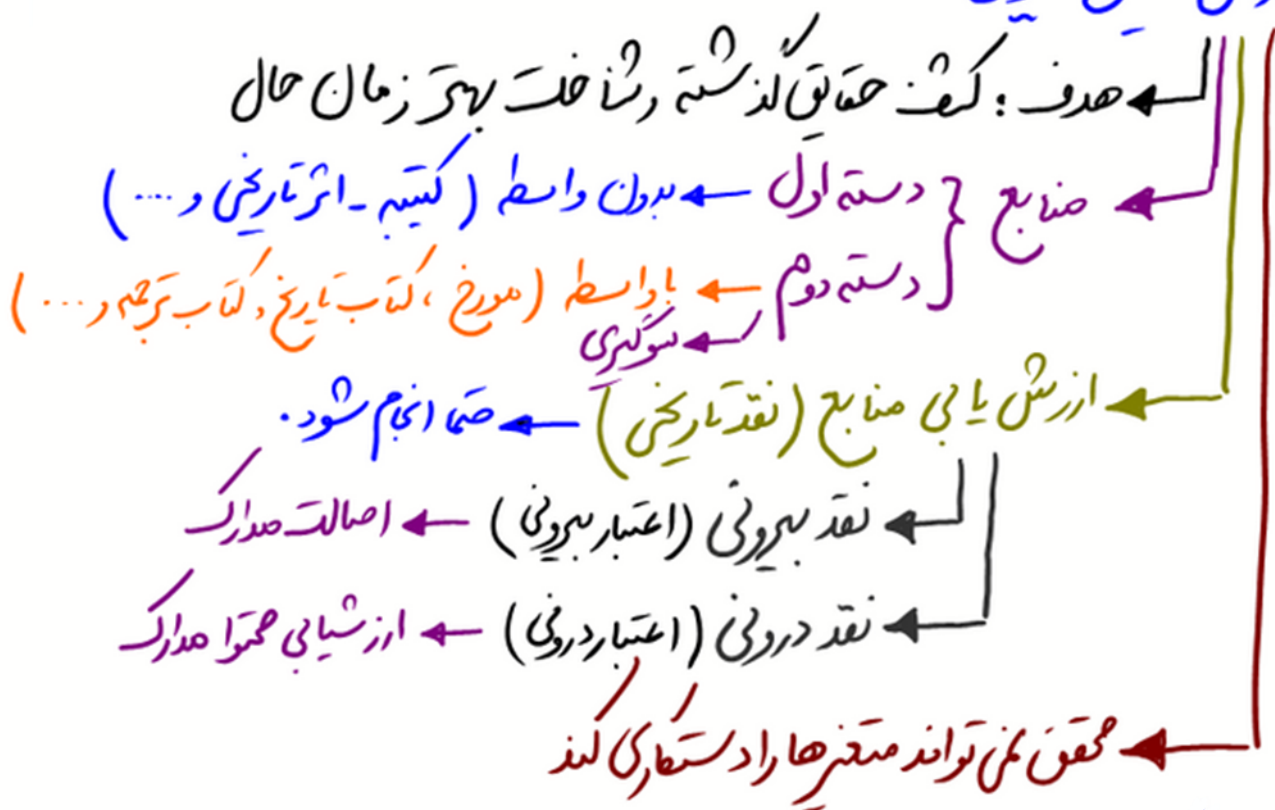 هدف : کشف حقایق گذشته و شناخت بهتر زمان حال
منابع { دسته اول ← بدون واسطه ( کتیبه - اثر تاریخی و ....)
دسته دوم ← با واسطه (مورخ ، کتاب تاریخ و کتاب ترجمه و ....)
← سوگیری
ارزش یابی منابع (نقد تاریخی) ← حتما انجام شود.
نقد بیرونی (اعتبار بیرونی) ← اصالت مدارک
نقد درونی (اعتبار درونی) ← ارزشیابی محتوا مدارک
محقق نمی تواند متغیرها را دستکاری کند